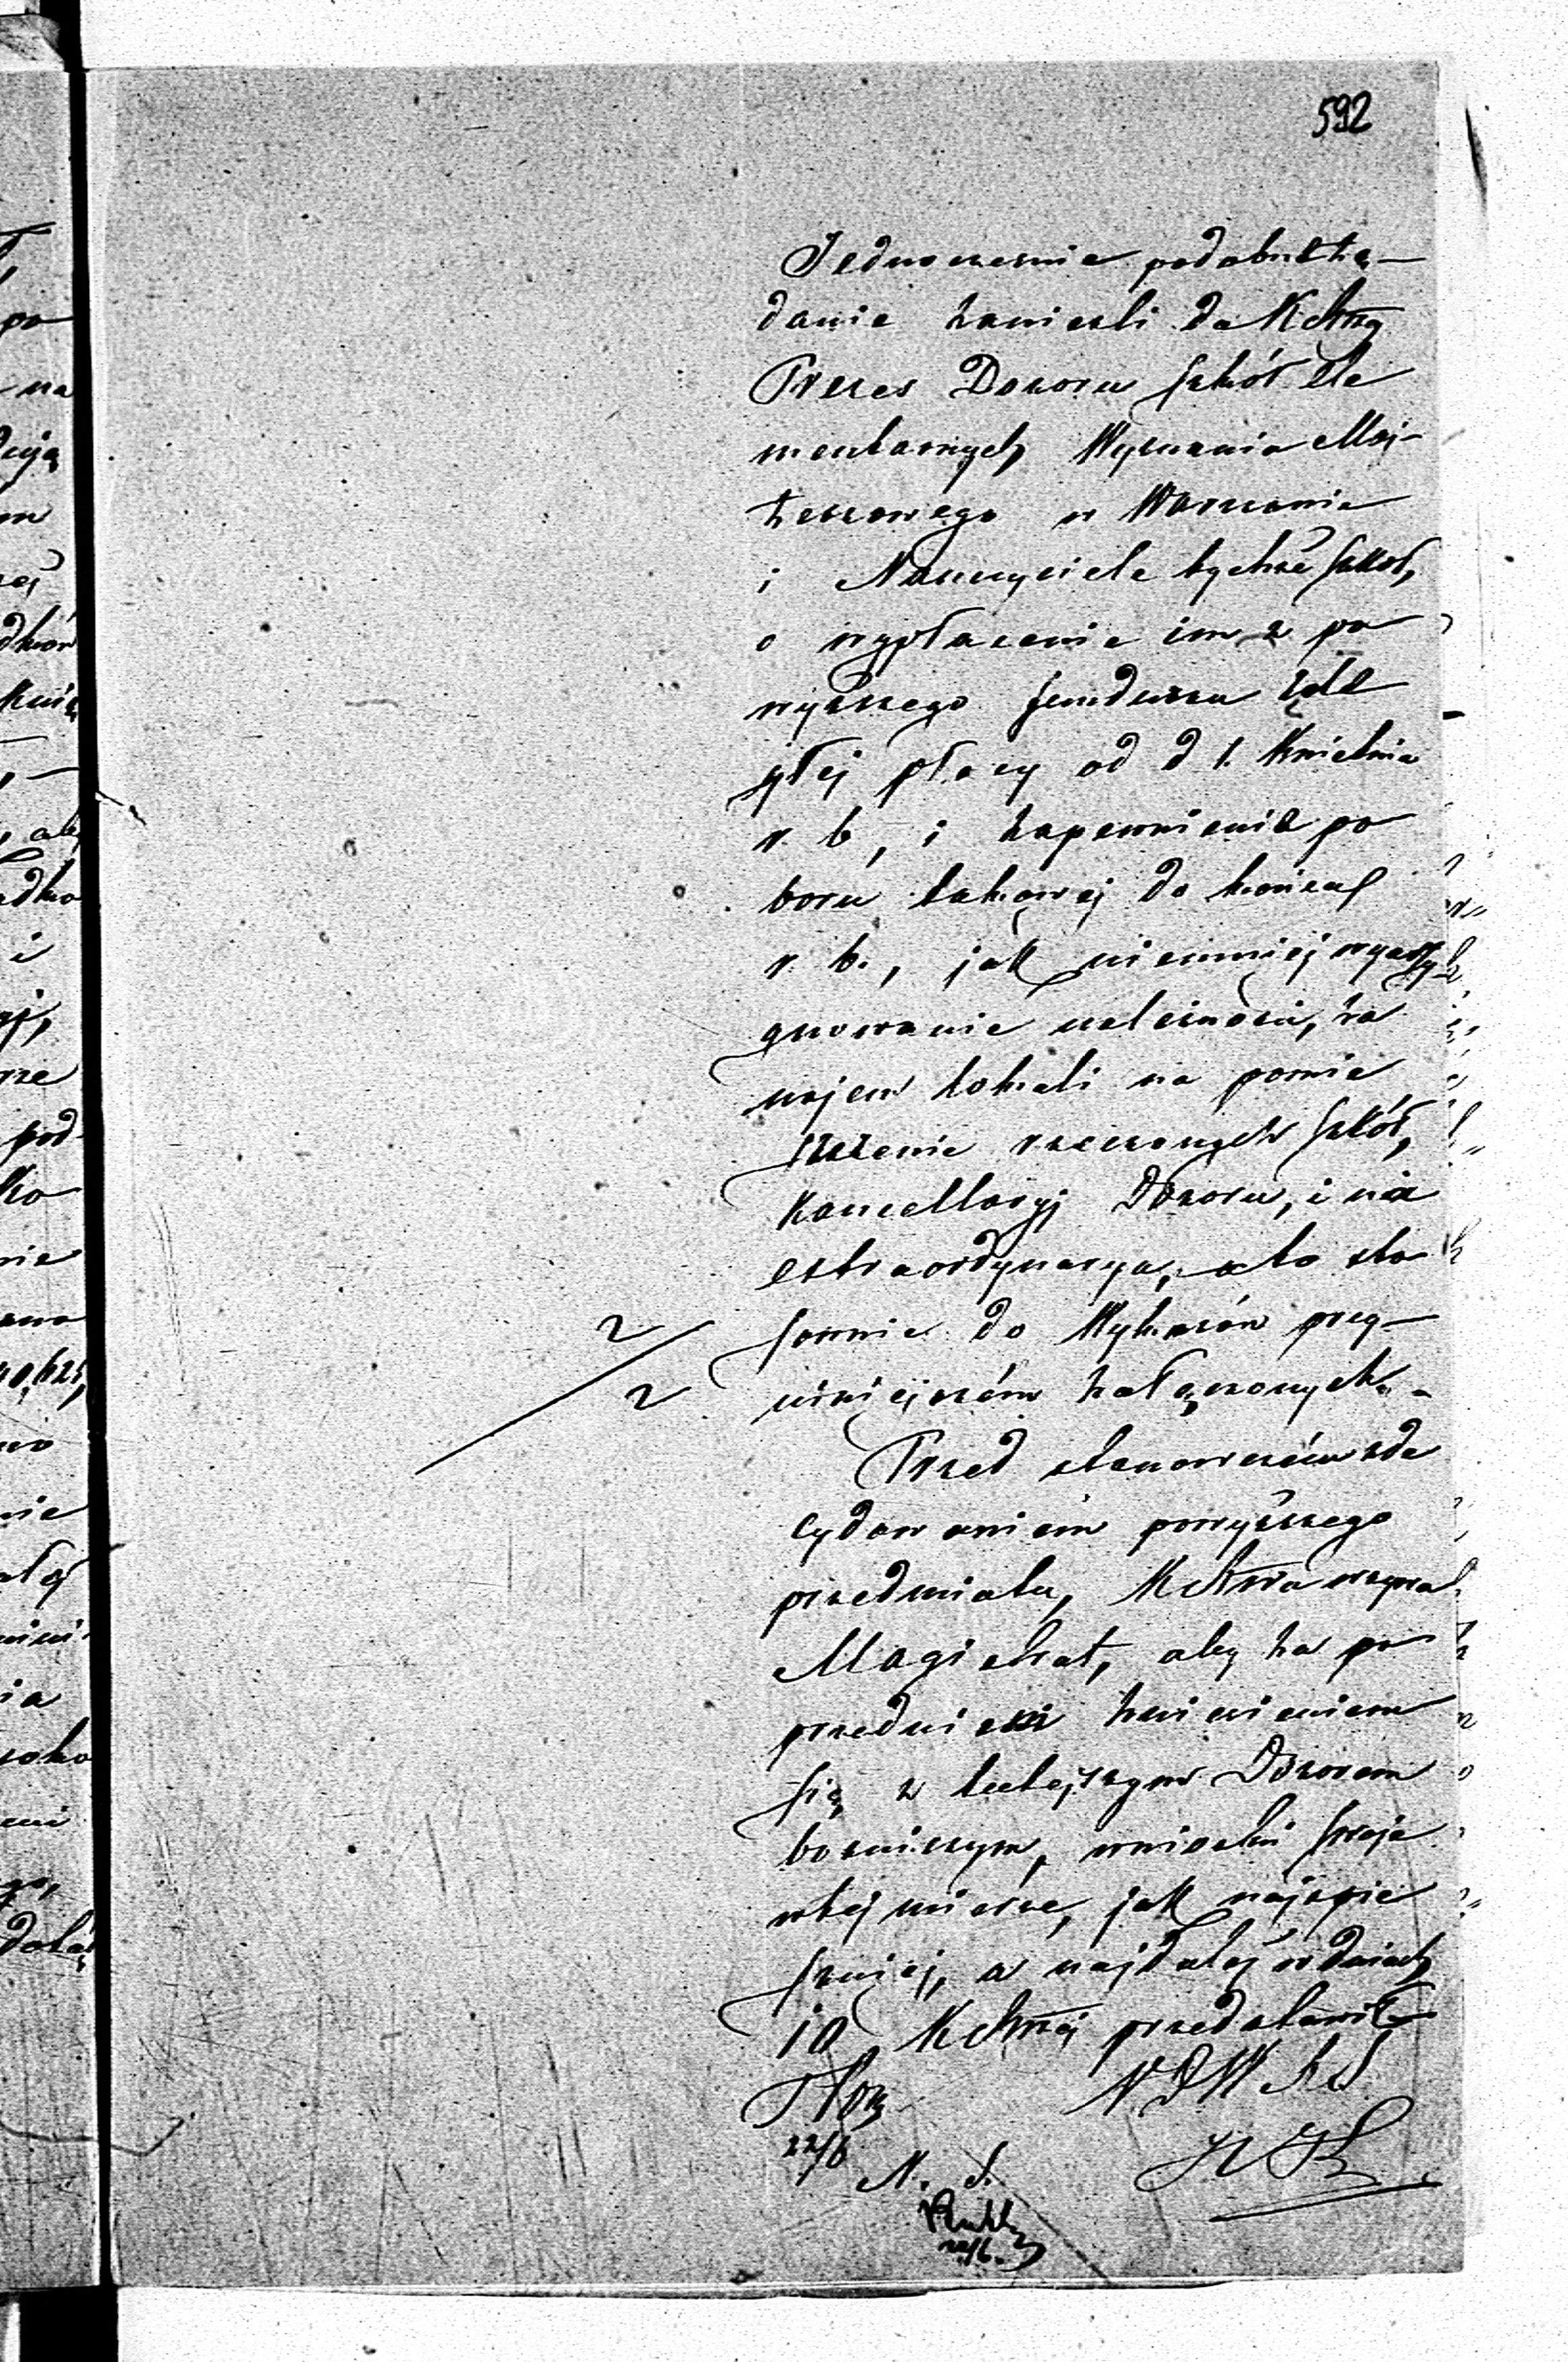 592
Jednocześnie podobneż żą-
danie zanieśli do K Rząg
Prezes Dozoru szkół Ele
mentarnych Wyznania Moj-
żeszowego w Warszawie
i Nauczyciele tychże szkół,
o wypłacenie im z po
wyższego funduszu zale
głej płacy od d 1. Kwietnia
r. b, i zapewnienie po
boru takowej do końca
r. b., jak niemniej wyassy
gnowanie należności, za
najem lokali na pomie
szczenie rzeczonych szkół,
Kancellaryj Dozoru, i na
extraordynarya, a to sto
sownie do Wykazów przy
niniejszém załączonych. -
Przed stanowczém zde
cydowaniem powyższego
przedmiotu, K Rząwa wzywa
Magistrat, aby za po
przedniem zniesieniem
się z tutejszym Dozorem
bożniczym, wnioski swoje
w tej mierze, jak najspie
szniej, a najdalej w dniach
10 K Rząej przedstawił
2
2
22/6
N. S.